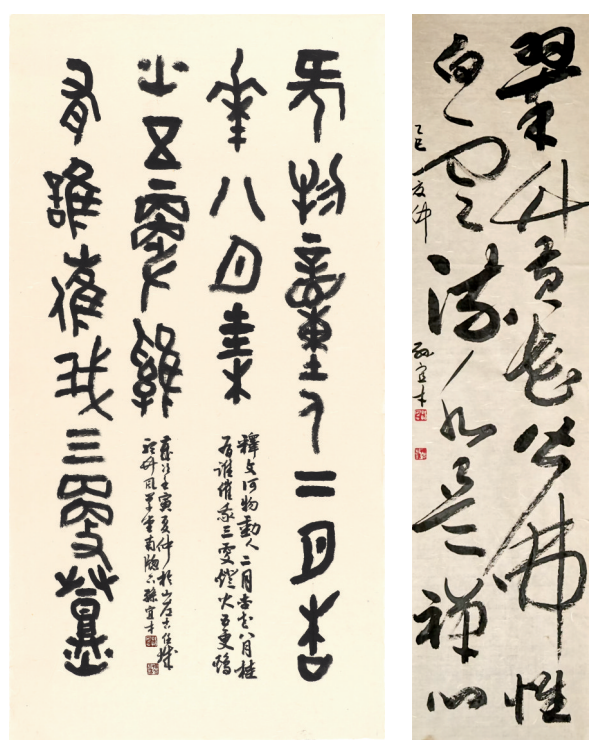 何物動人二月杏
花八月桂
有誰催我三更燈
火五更雞
釋文何物動人二月杏花八月桂
有誰催我三更燈火五更鷄
歲次壬寅夏仲於山左古任城
孫宜才
翠竹黃花皆佛性
白雲流水是禪心
乙巳夏仲
孫宜才